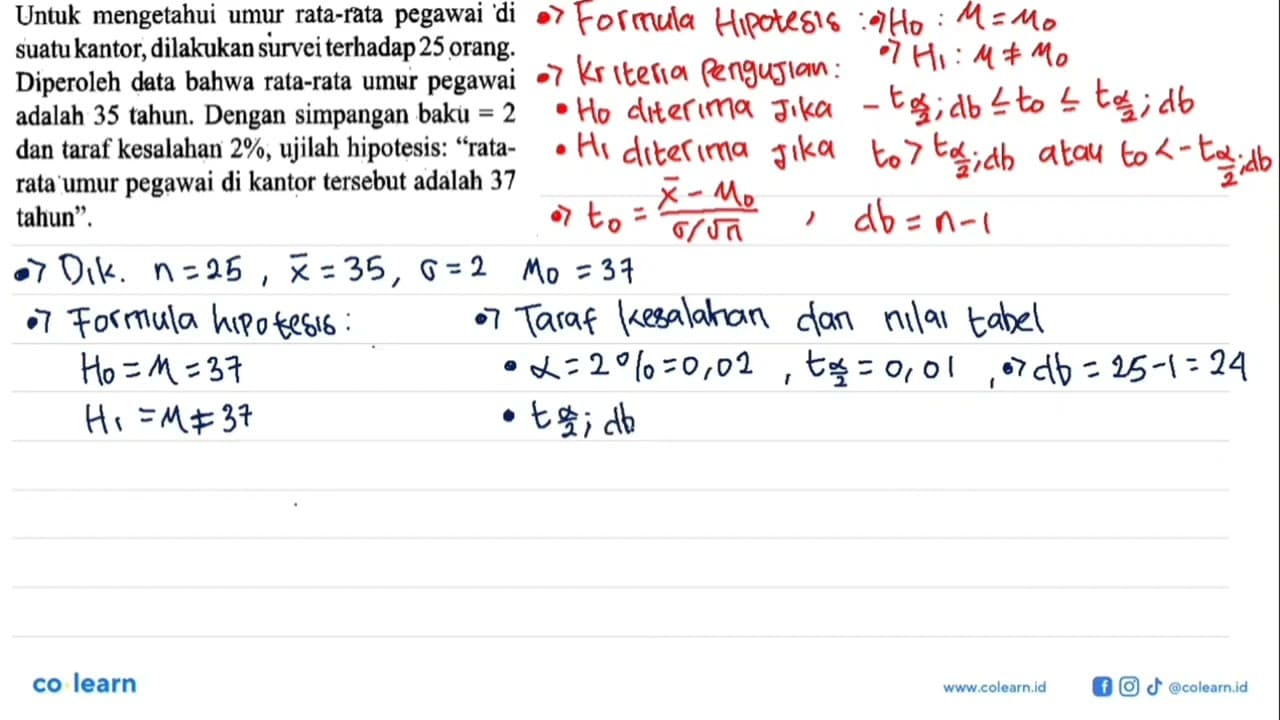 Untuk mengetahui umur rata-rata pegawai di
suatu kantor, dilakukan survei terhadap 25 orang.
Diperoleh data bahwa rata-rata umur pegawai
adalah 35 tahun. Dengan simpangan baku = 2
dan taraf kesalahan 2%, ujilah hipotesis: “rata-
rata umur pegawai di kantor tersebut adalah 37
tahun”.
•> Formula Hipotesis : •> Ho : M = Mo
•> H1 : M ≠ Mo
•> Kriteria Pengujian:
• Ho diterima Jika - t α/2; db ≤ to ≤ t α/2; db
• H1 diterima Jika to > t α/2; db atau to < - t α/2; db
•> to = (x̄ - Mo) / (σ/√n) , db = n-1
•> Dik. n = 25 , x̄ = 35, σ = 2 Mo = 37
•> Formula hipotesis :
Ho = M = 37
H1 = M ≠ 37
•> Taraf kesalahan dan nilai tabel
• α = 2% = 0,02 , t α/2 = 0,01 , •> db = 25-1 = 24
• t α/2; db
co learn
www.colearn.id
@colearn.id